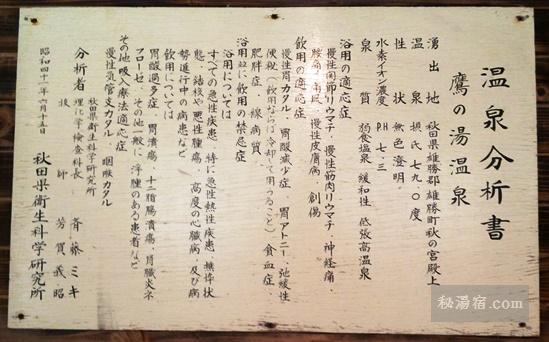 温泉分析書
鷹の湯温泉
湧出地 秋田県雄勝郡雄勝町秋の宮殿上
温泉 摂氏七九、〇度
性状 無色澄明、
水素イオン濃度 PH七、三
泉質 弱食塩泉 緩和性 低張高温泉
浴用の適応症
慢性関節リウマチ、慢性筋肉リウマチ、神経痛、
慢性皮膚病、創傷
飲用の適応症
慢性胃カタル、胃酸減少症、胃アトニー、弛緩性
便秘（飲用ならば冷却して用うること）貧血症、
肥胖症、線病質、
浴用並に飲用の禁忌症
浴用については
すべての急性疾患 特に急性熱性疾患、
態、結核や悪性腫瘍、高度の心臓病、及び病
勢進行中の病患など
飲用については
胃酸過多症、胃潰瘍、十二指腸潰瘍、腎臓炎ネ
フローゼ、その他一般に、浮腫のある患者など
その他吸入療法適応症
慢性気管支カタル、咽喉カタル
分析者 秋田県衛生科学研究所
理化学検査科長 斉藤ミキ
技師 芳賀義昭
昭和四十一年六月十五日 秋田県衛生科学研究所
秘湯宿.com